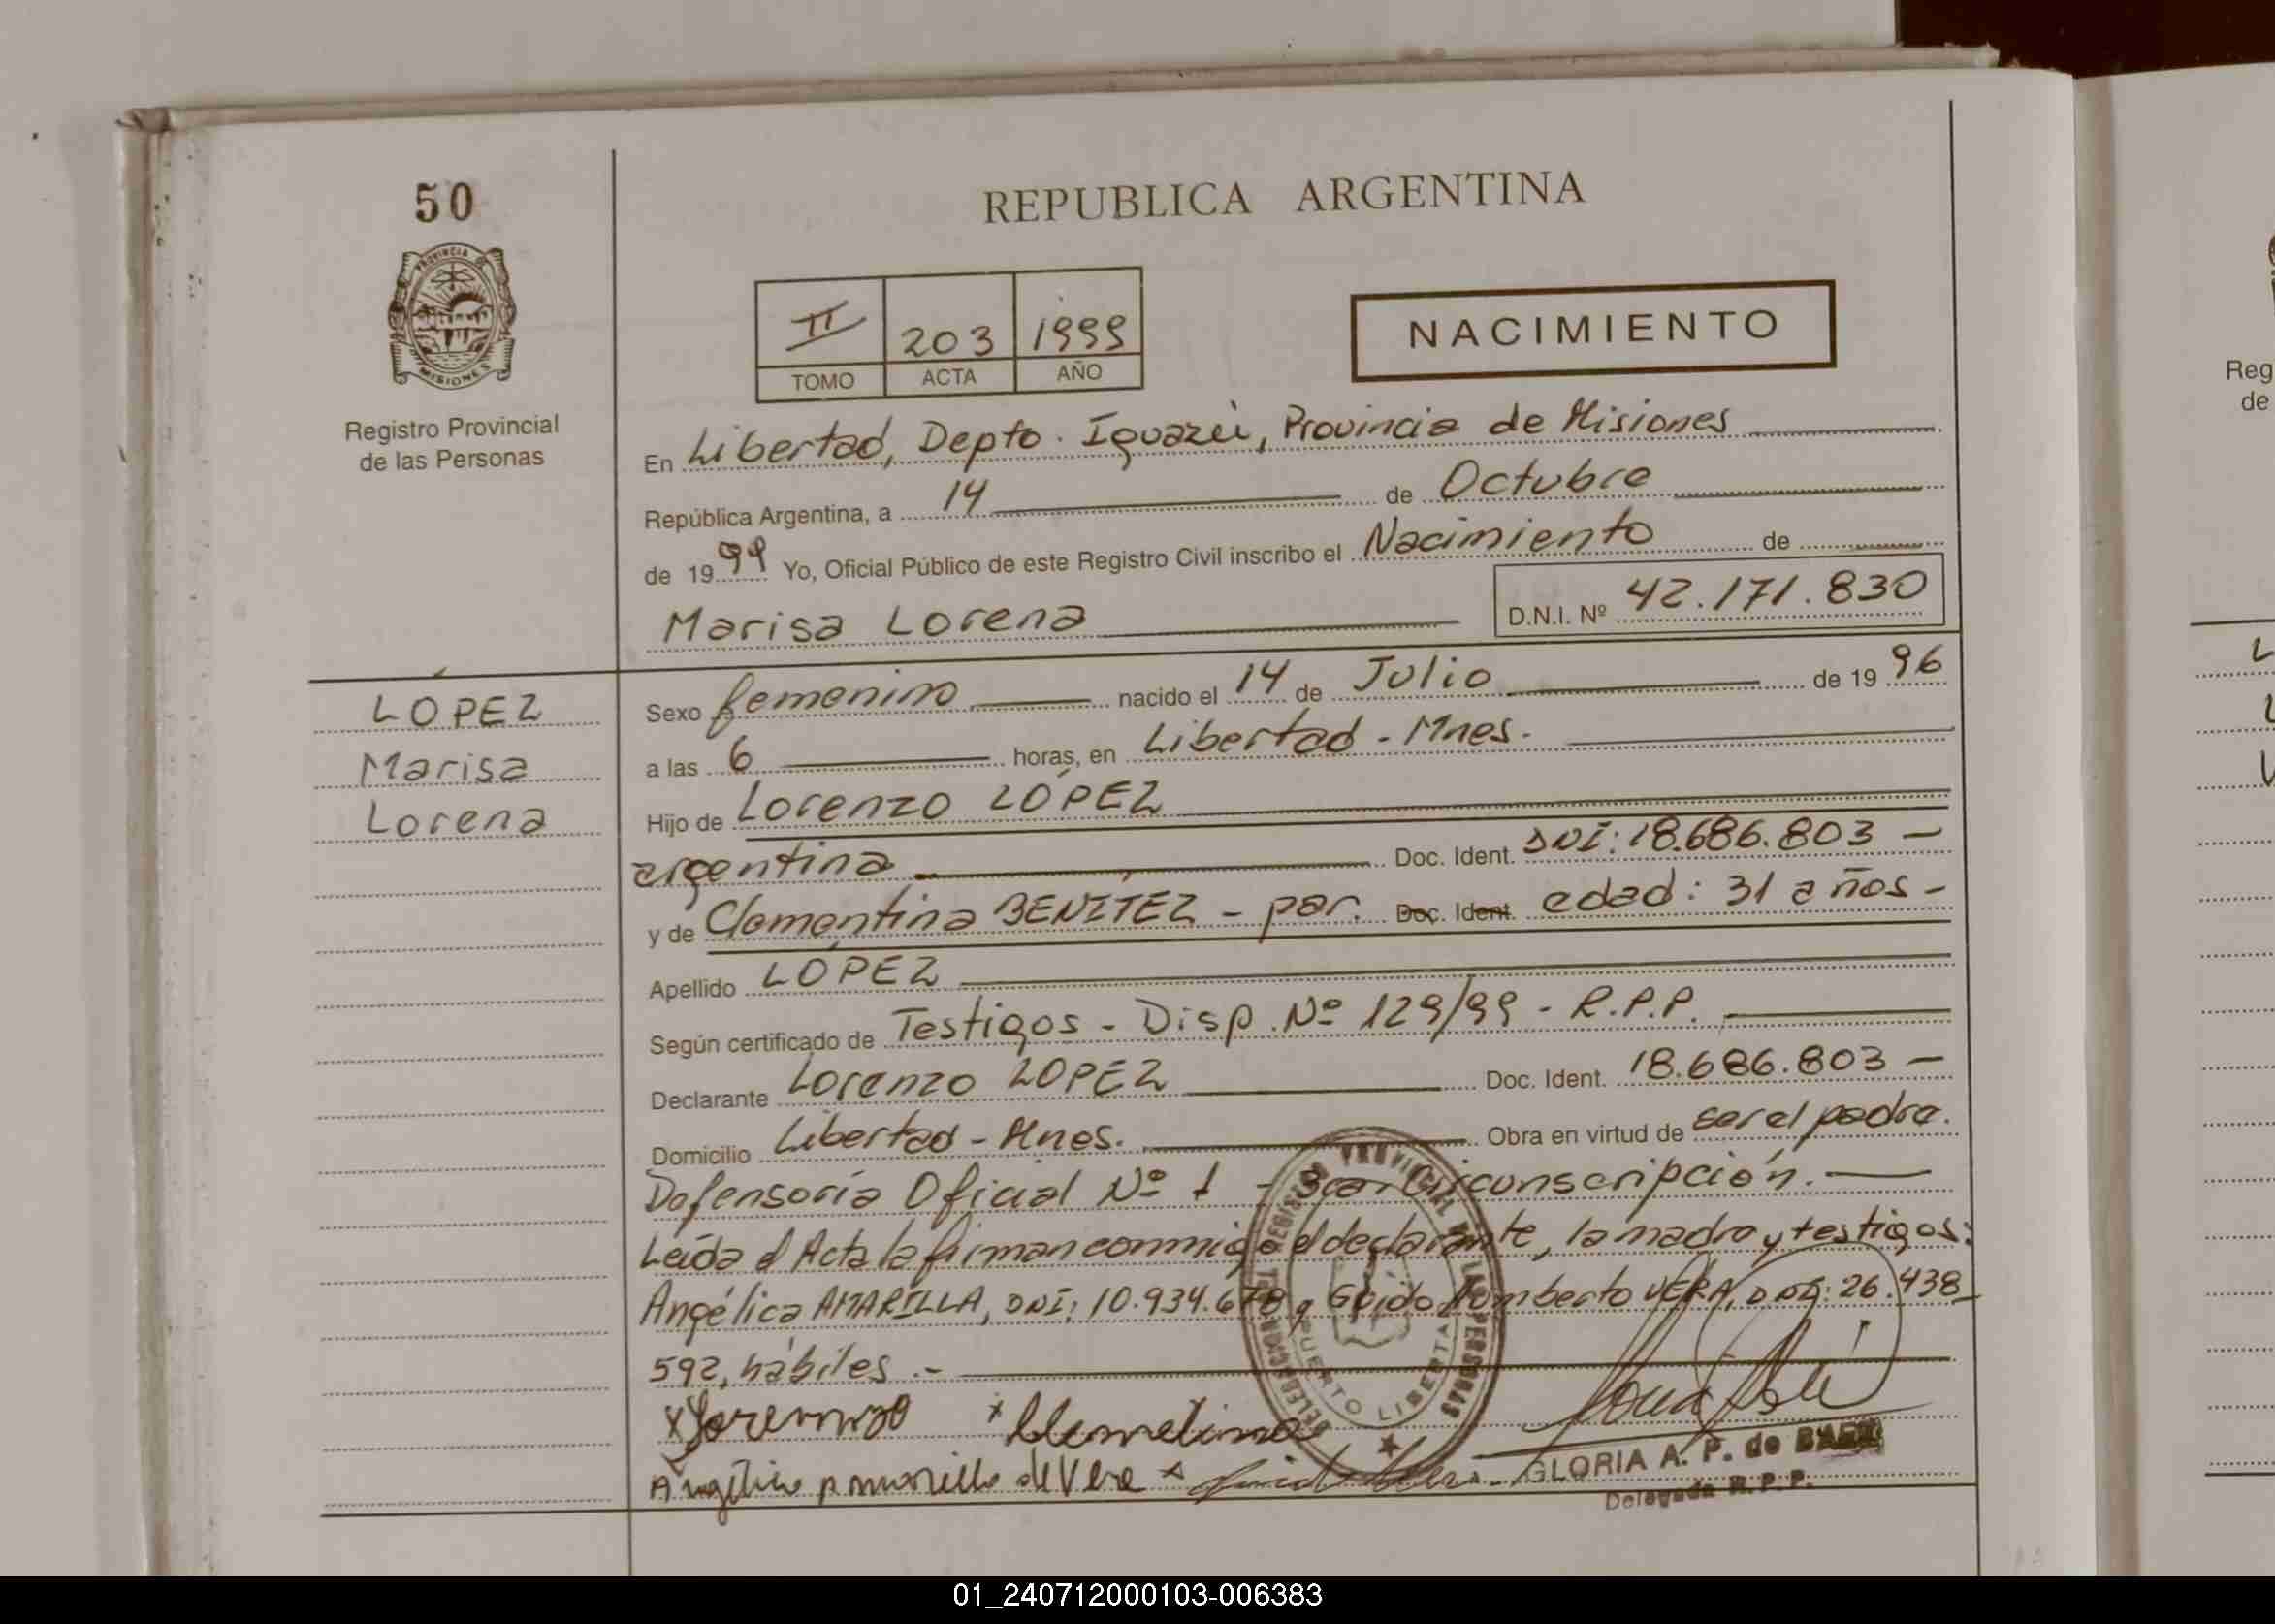 50
REPUBLICA ARGENTINA
PROVINCIA
MISIONES
II 203 1999
TOMO ACTA AÑO
NACIMIENTO
Registro Provincial
de las Personas
En Libertad, Depto. Iguazú, Provincia de Misiones
República Argentina, a 14 de Octubre
de 1999 Yo, Oficial Público de este Registro Civil inscribo el Nacimiento de
Marisa Lorena D.N.I. Nº 42.171.830
LÓPEZ
Marisa
Lorena
Sexo femenino nacido el 14 de Julio de 1996
a las 6 horas, en Libertad - Mnes.
Hijo de Lorenzo LÓPEZ
argentina Doc. Ident. DNI: 18.686.803 —
y de Clementina BENÍTEZ - par. Doc. Ident. edad: 31 años -
Apellido LÓPEZ
Según certificado de Testigos - Disp. Nº 129/99 - R.P.P.
Declarante Lorenzo LOPEZ Doc. Ident. 18.686.803 —
Domicilio Libertad - Mnes. Obra en virtud de ser el padre.
Defensoría Oficial Nº 1 - 3era Circunscripción.
Leída el Acta la firman conmigo el declarante, la madre y testigos:
Angélica AMARILLA, DNI: 10.934.678 y Guido Humberto VERA, DNI: 26.438_
592, hábiles .-
x Lorenzo x Clemetina
Angélica Amarilla de Vera x
GLORIA A. P. de
Delegada R. P. P.
REGISTRO PROVINCIAL DE LAS PERSONAS
PUERTO LIBERTAD
Reg
de
01_240712000103-006383